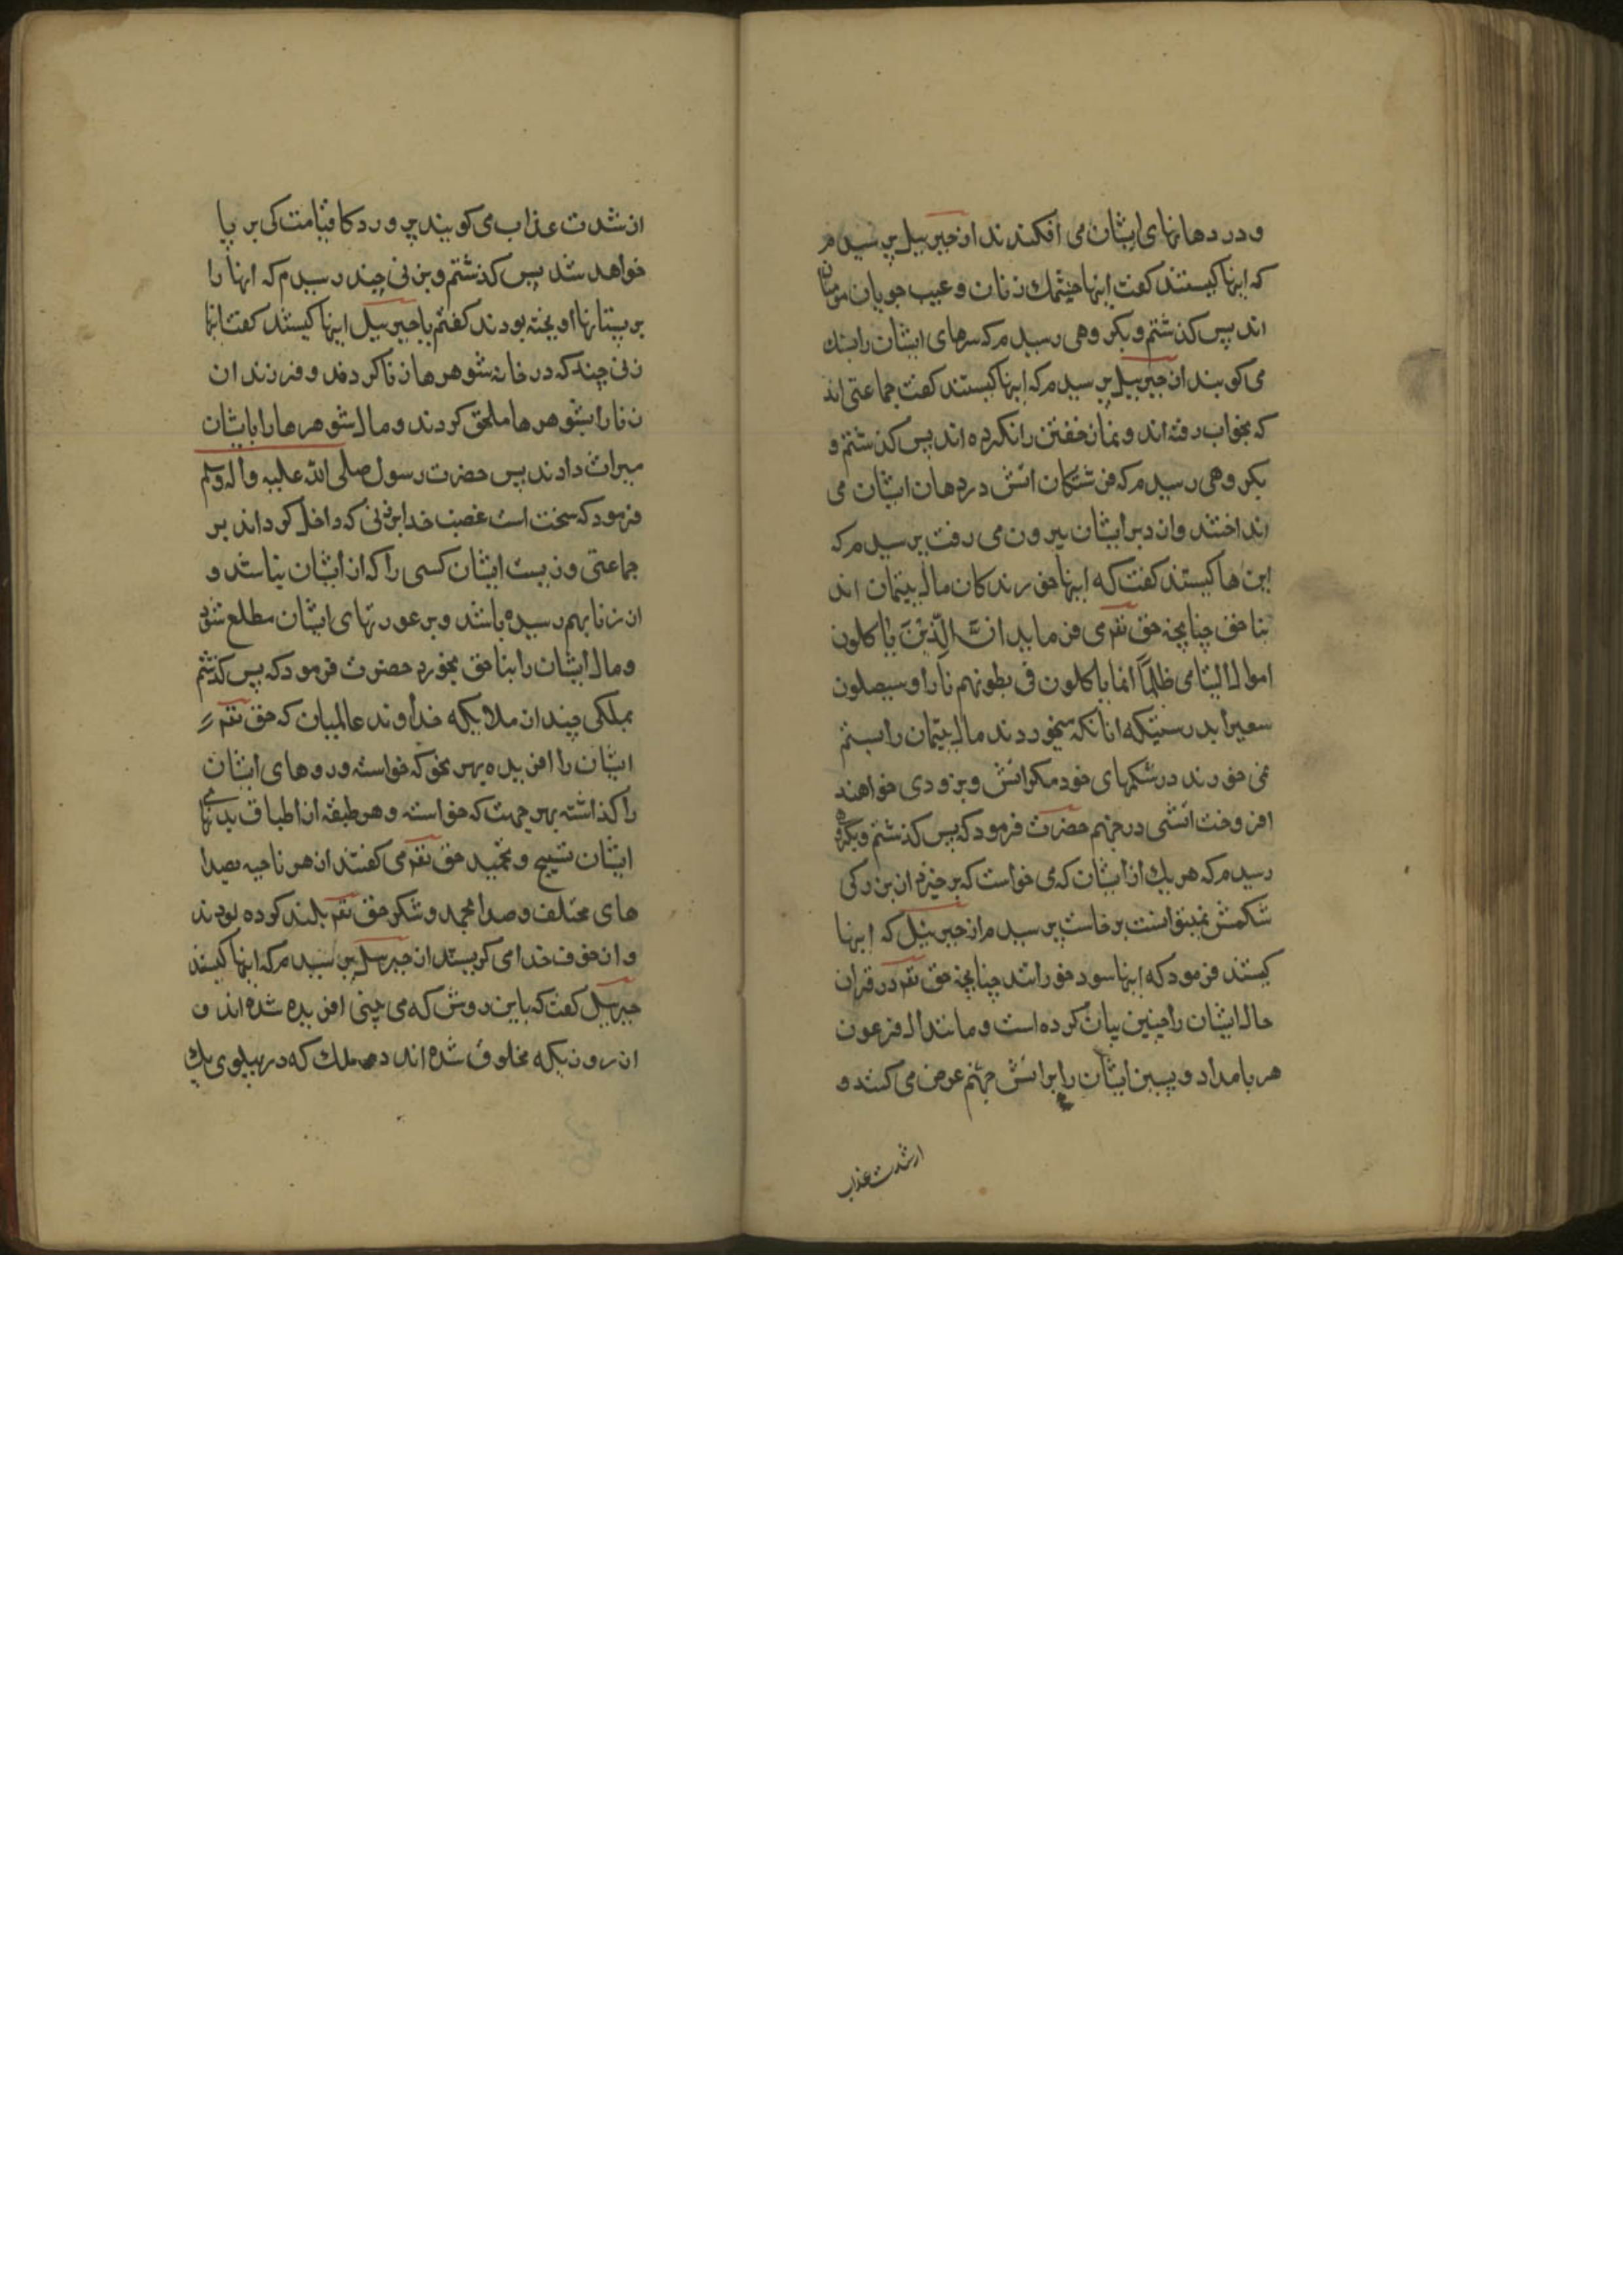 و در دهانهای ایشان می افکندند از جبرییل پرسیدم
که اینها کیستند کفت اینها چشمک زنان و عیب جویان مومنان
اند پس کذشتم و بکروهی رسیدم که سرهای ایشان را بسنك
می کوبند از جبرییل پرسیدم که اینها کیستند کفت جماعتی اند
که بخواب رفته اند و نماز خفتن را نکرده اند پس کذشتم و
بکروهی رسیدم که فرشتکان اتش در دهان ایشان می
انداختند و از دبر ایشان بیرون می رفت پرسیدم که
این ها کیستند کفت که اینها خورندکان مال یتیمان اند
بناحق چنانچه حق تعم می فرماید ان الّذین یاکلون
اموال الیتامی ظلماً انما یاکلون فی بطونهم نارا و سیصلون
سعیرا بدرستیکه انانکه میخوردند مال یتیمان را بستم
نمی خورند در شکمهای خود مکر اتش و بزودی خواهند
افروخت اتشی در جهنم حضرت فرمود که پس کذشتم و بکروه
رسیدم که هر یك از ایشان که می خواست که برخیزد از بزرکی
شکمش نمیتوانست برخاست پرسیدم از جبرییل که اینها
کیستند فرمود که اینها سود خورانند چنانچه حق تعم در قران
حال ایشان را چنین بیان کرده است و مانند ال فرعون
هر بامداد و پسین ایشان را بر اتش جهنم عرض می کنند و
از شدت عذاب
از شدت عذاب می کویند پروردکا قیامت کی بر پا
خواهد شد پس کذشتم و بزنی چند رسیدم که انها را
بر پستانها اویخته بودند کفتم یا جبرییل اینها کیستند کفت اینها
زنی چند که در خانه شوهرها زنا کردند و فرزندان
زنا را بشوهرها ملحق کردند و مال شوهرها را بایشان
میراث دادند پس حضرت رسول صلی الله علیه و اله وسلم
فرمود که سخت است غضب خدا بر زنی که داخل کرداند بر
جماعتی و نسبت ایشان کسی را که از ایشان نباشد و
از زنا بهم رسیده باشد و بر عورتهای ایشان مطلع شود
و مال ایشان را بناحق بخورد حضرت فرمود که پس کذشتم
بملکی چند از ملایکه خداوند عالمیان که حق تعم
ایشان را افریده بهر نحو که خواسته و روهای ایشان
را کذاشته بهر جهت که خواسته و هر طبقه از اطباق بدنهای
ایشان تسبیح و تحمید حق تعم می کفتند از هر ناحیه بصدا
های مختلف و صدا بحمد و شکر حق تعم بلند کرده بودند
و از خوف خدا می کریستند از جبرییل پرسیدم که اینها کیستند
جبرییل کفت که باین روش که می بینی افریده شده اند و
از روزیکه مخلوق شده اند دو ملك که در پهلوی یك